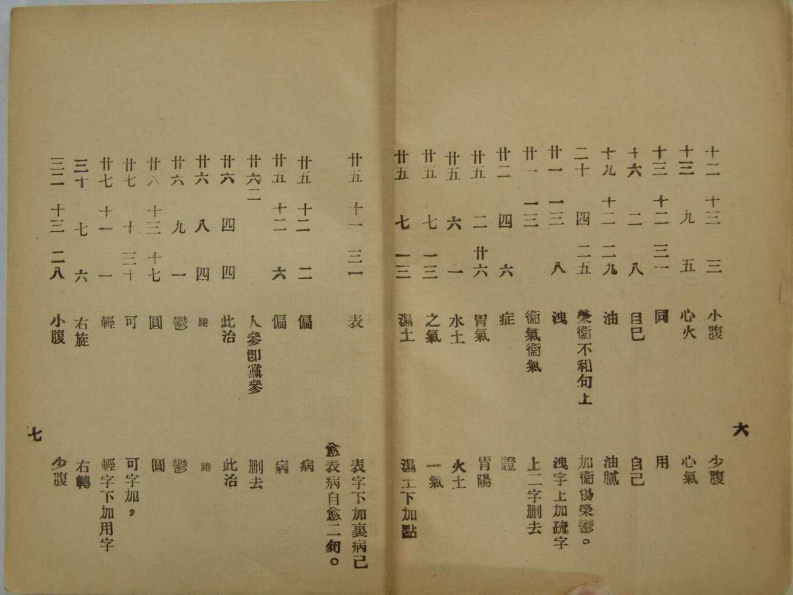 六
十二 十三 三 小腹 少腹
十三 九 五 心火 心氣
十三 十二 三一 同 用
十六 二 八 自巳 自己
十九 十二 二九 油 油膩
二十 四 二五 榮衞不和句上 加衞傷榮鬱。
廿一 一三 八 洩 洩字上加疏字
廿一 一三 衞氣衞氣 上二字删去
廿二 四 六 症 證
廿五 二 廿六 胃氣 胃陽
廿五 六 一 水土 火土
廿五 七 一三 之氣 一氣
廿五 七 一三 濕土 濕土下加點
廿五 十一 三一 表 表字下加裏病己
愈表病自愈二句。
廿五 十二 二 偏 病
廿五 十二 六 偏 病
廿六 二 人參卽黨參 删去
廿六 四 四 此治 此治
廿六 八 四
廿六 九 一 鬱 鬱
廿六 十三 十七 圓 圓
廿七 十 三十 可 可字加，
廿七 十一 一 輕 輕字下加用字
三十 七 六 右旋 右轉
三二 十三 二八 小腹 少腹
七